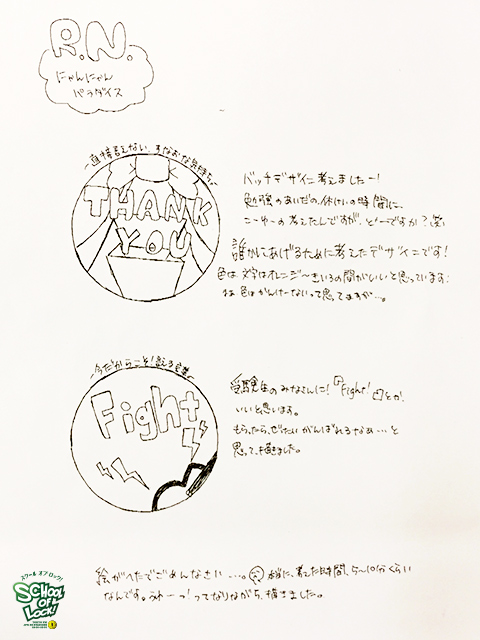 R.N.
にゃんにゃん
パラダイス
〜直接言えない、すなおな気持ち〜
THANK
YOU
バッチデザイン考えましたー!
勉強のあいだの休けいの時間に、
こーゆーの考えたんですが、どーですか?笑
誰かにあげるために考えたデザインです!
色は文字はオレンジ〜きいろの間がいいと思っています!
色はかんけーないって思てますが…。
〜今だからこそ!言える言葉〜
Fight
受験生のみなさんに!『Fight!』とか!
いいと思います。
もらったら、ぜったいがんばれるなぁ…と
思って、描きました。
絵がへたでごめんなさい…。本当に、考えた時間、5〜10分くらい
なんです。うわーっ!ってなりながら、描きました。
スクール オブ ロック!
SCHOOL
OF
LOCK!